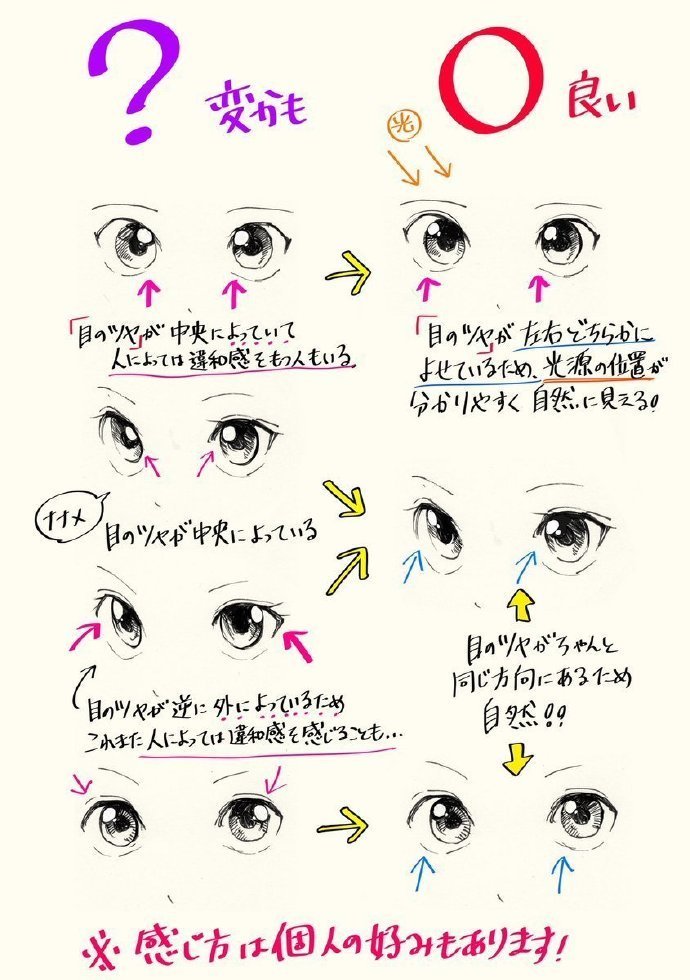 ?
変かも
○
良い
光
「目のツヤ」が中央によっていて
人によっては違和感をもつ人もいる
「目のツヤ」が左右どちらかに
よせているため、光源の位置が
分かりやすく自然に見える!
ナナメ
目のツヤが中央によっている
目のツヤがちゃんと
同じ方向にあるため
自然!!
目のツヤが逆に外によっているため
これまた人によっては違和感を感じることも...
※感じ方は個人の好みもあります!